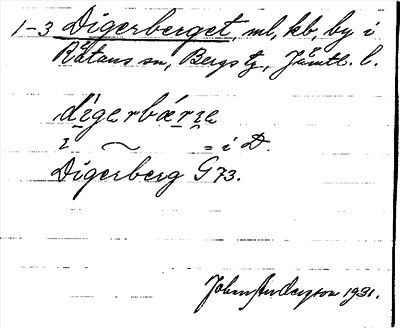 1-3 Digerberget, ml, kb, by i
Råtans sn, Bergs tg, Jämtl. l.
digerbærie
i ~ = i D.
Digerberg G 73.
John Anderzson 1931.